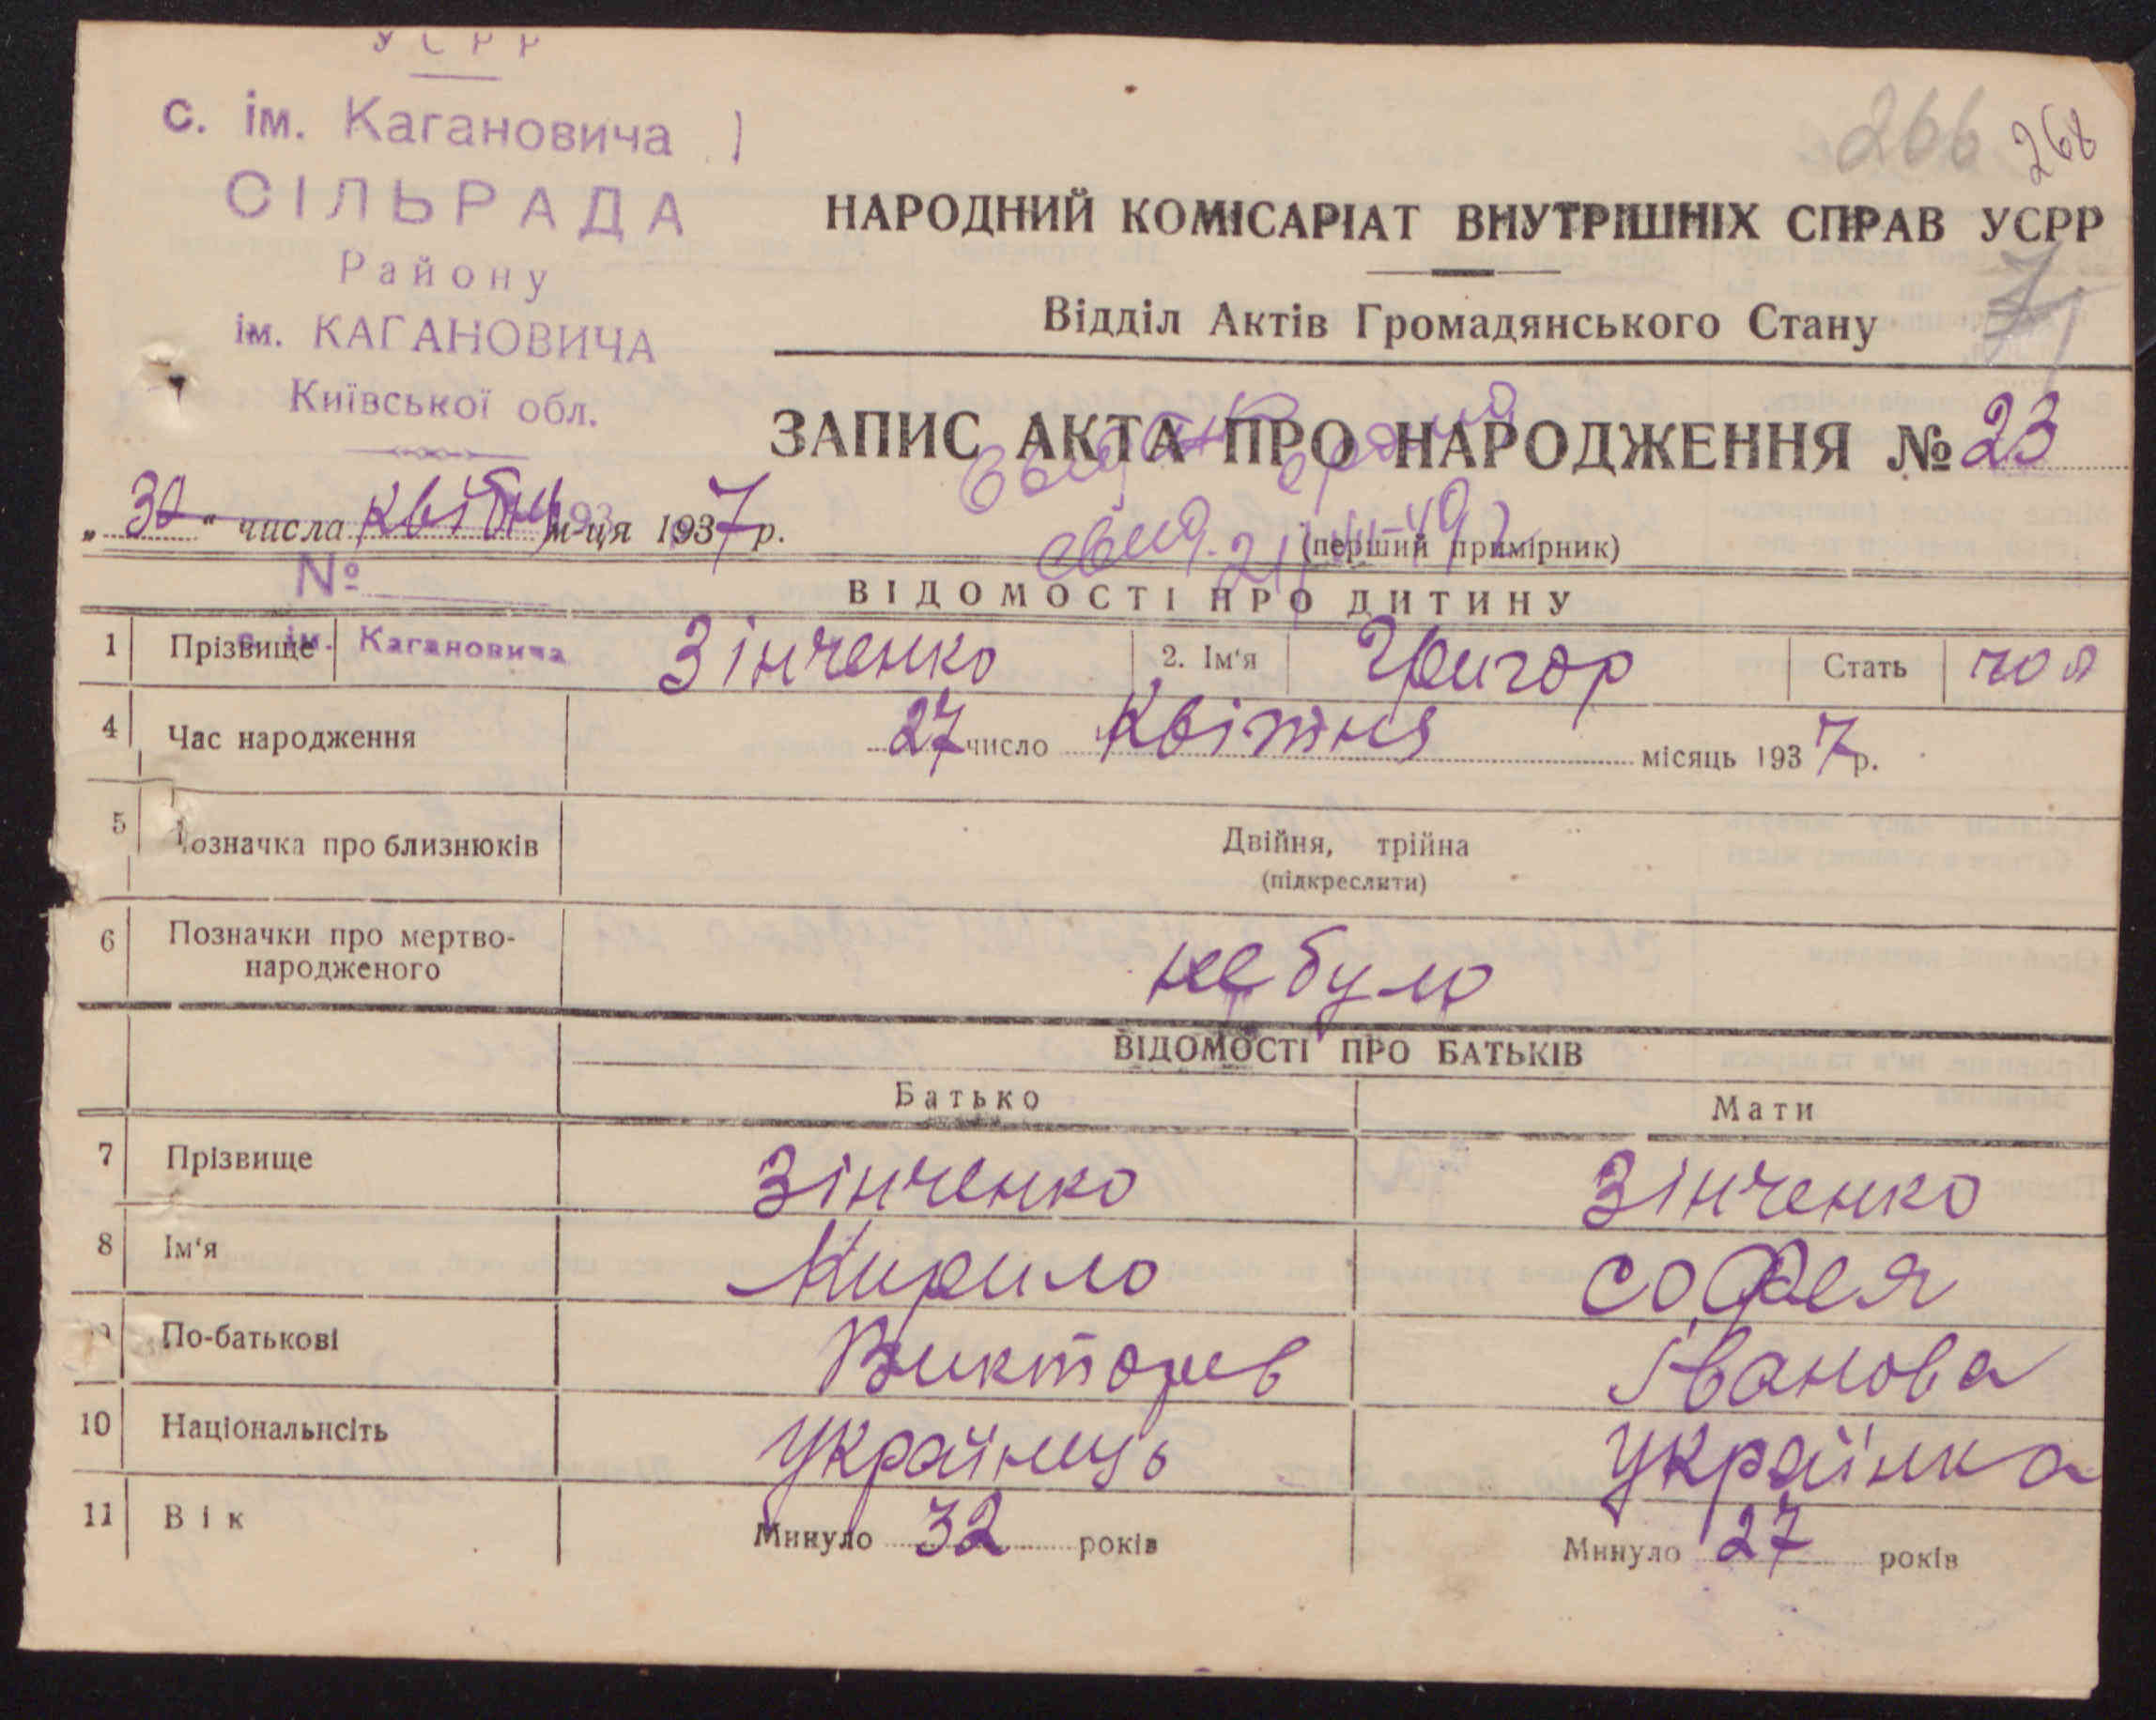 УСРР
с. ім. Кагановича
СІЛЬРАДА
Району
ім. КАГАНОВИЧА
Київської обл.
266 268
НАРОДНИЙ КОМІСАРІАТ ВНУТРІШНІХ СПРАВ УСРР
Відділ Актів Громадянського Стану
ЗАПИС АКТА ПРО НАРОДЖЕННЯ № 23
„30“ числа квітня м-ця 1937 р.
(перший примірник)
№
ВІДОМОСТІ ПРО ДИТИНУ
с. ім. Кагановича
1 Прізвище Зінченко 2. Ім'я Григор Стать чол
4 Час народження 27 число Квітня місяць 1937 р.
5 Позначка про близнюків Двійня, трійна
(підкреслити)
6 Позначки про мертво-
народженого не було
ВІДОМОСТІ ПРО БАТЬКІВ
Батько Мати
7 Прізвище Зінченко Зінченко
8 Ім'я Кирило София
9 По-батькові Викторов Іванова
10 Національнсіть Українець Українка
11 Вік Минуло 32 років Минуло 27 років